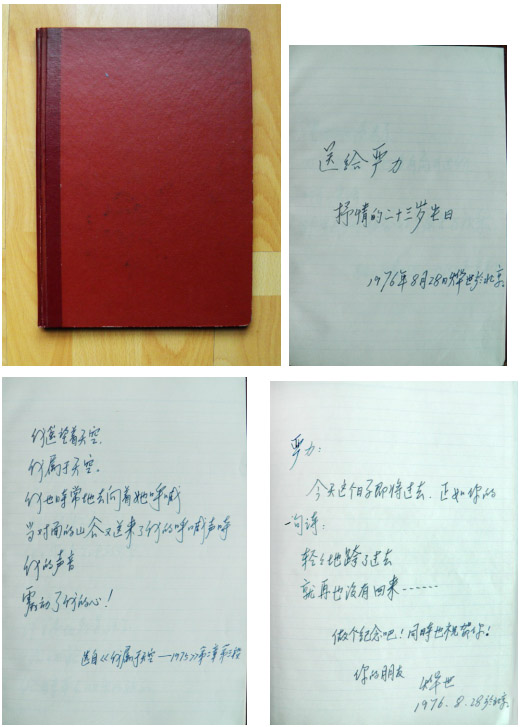 送给严力
抒情的二十三岁生日
1976年8月28日 世於北京
我遥望着天空.
我属于天空.
我也时常地去向着她呼喊
当对面的山谷又送来了我的呼喊声时
我的声音
震动了我的心!
选自《我属于天空—1975》第二章第三段
严力:
今天这个日子即将过去. 正如你的
一句诗:
轻轻地跨了过去
就再也没有回来……
做个纪念吧! 同时也祝贺你!
你的朋友
世
1976.8.28於北京